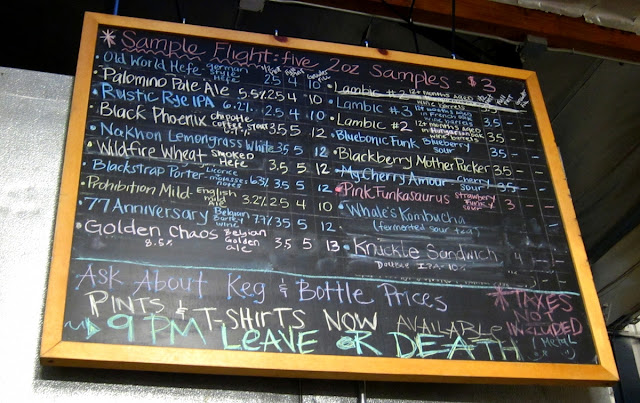 * Sample Flight: five 2oz Samples - $3
Old World Hefe german style Hefe 2.5 4 10
Palomino Pale Ale 5.5% 2.5 4 10
Rustic Rye IPA 6.2% 2.5 4 10
Black Phoenix chipotle coffee stout 3.5 5 12
Nakhon Lemongrass White 3.5 5 12
Wildfire Wheat Smoked Hefe 3.5 5 12
Blackstrap Porter Licorice molasses notes 6% 3.5 5 12
Prohibition Mild English mild ale 3.2% 2.5 4 10
77 Anniversary Belgian Barley wine 7.7% 3.5 5 12
Golden Chaos Belgian Golden ale 8.5% 3.5 5 13
Lambic #3 12+ months aged wine barrels
Lambic #3 3.5 - -
Lambic #2 12+ months aged wine barrels
Bluebonic Funk Blueberry sour 3.5 - -
Blackberry Mother Pucker 3.5 - -
My Cherry Amour Cherry sour 3.5
* Pink Funkasaurus Strawberry Funky sour 3
Whale's Kombucha (fermented sour tea)
Knuckle Sandwich 4 - -
Double IPA - 10%
Ask About Keg & Bottle Prices
Pints & T-Shirts Now Available
9 PM Leave or Death
* Taxes Not Included